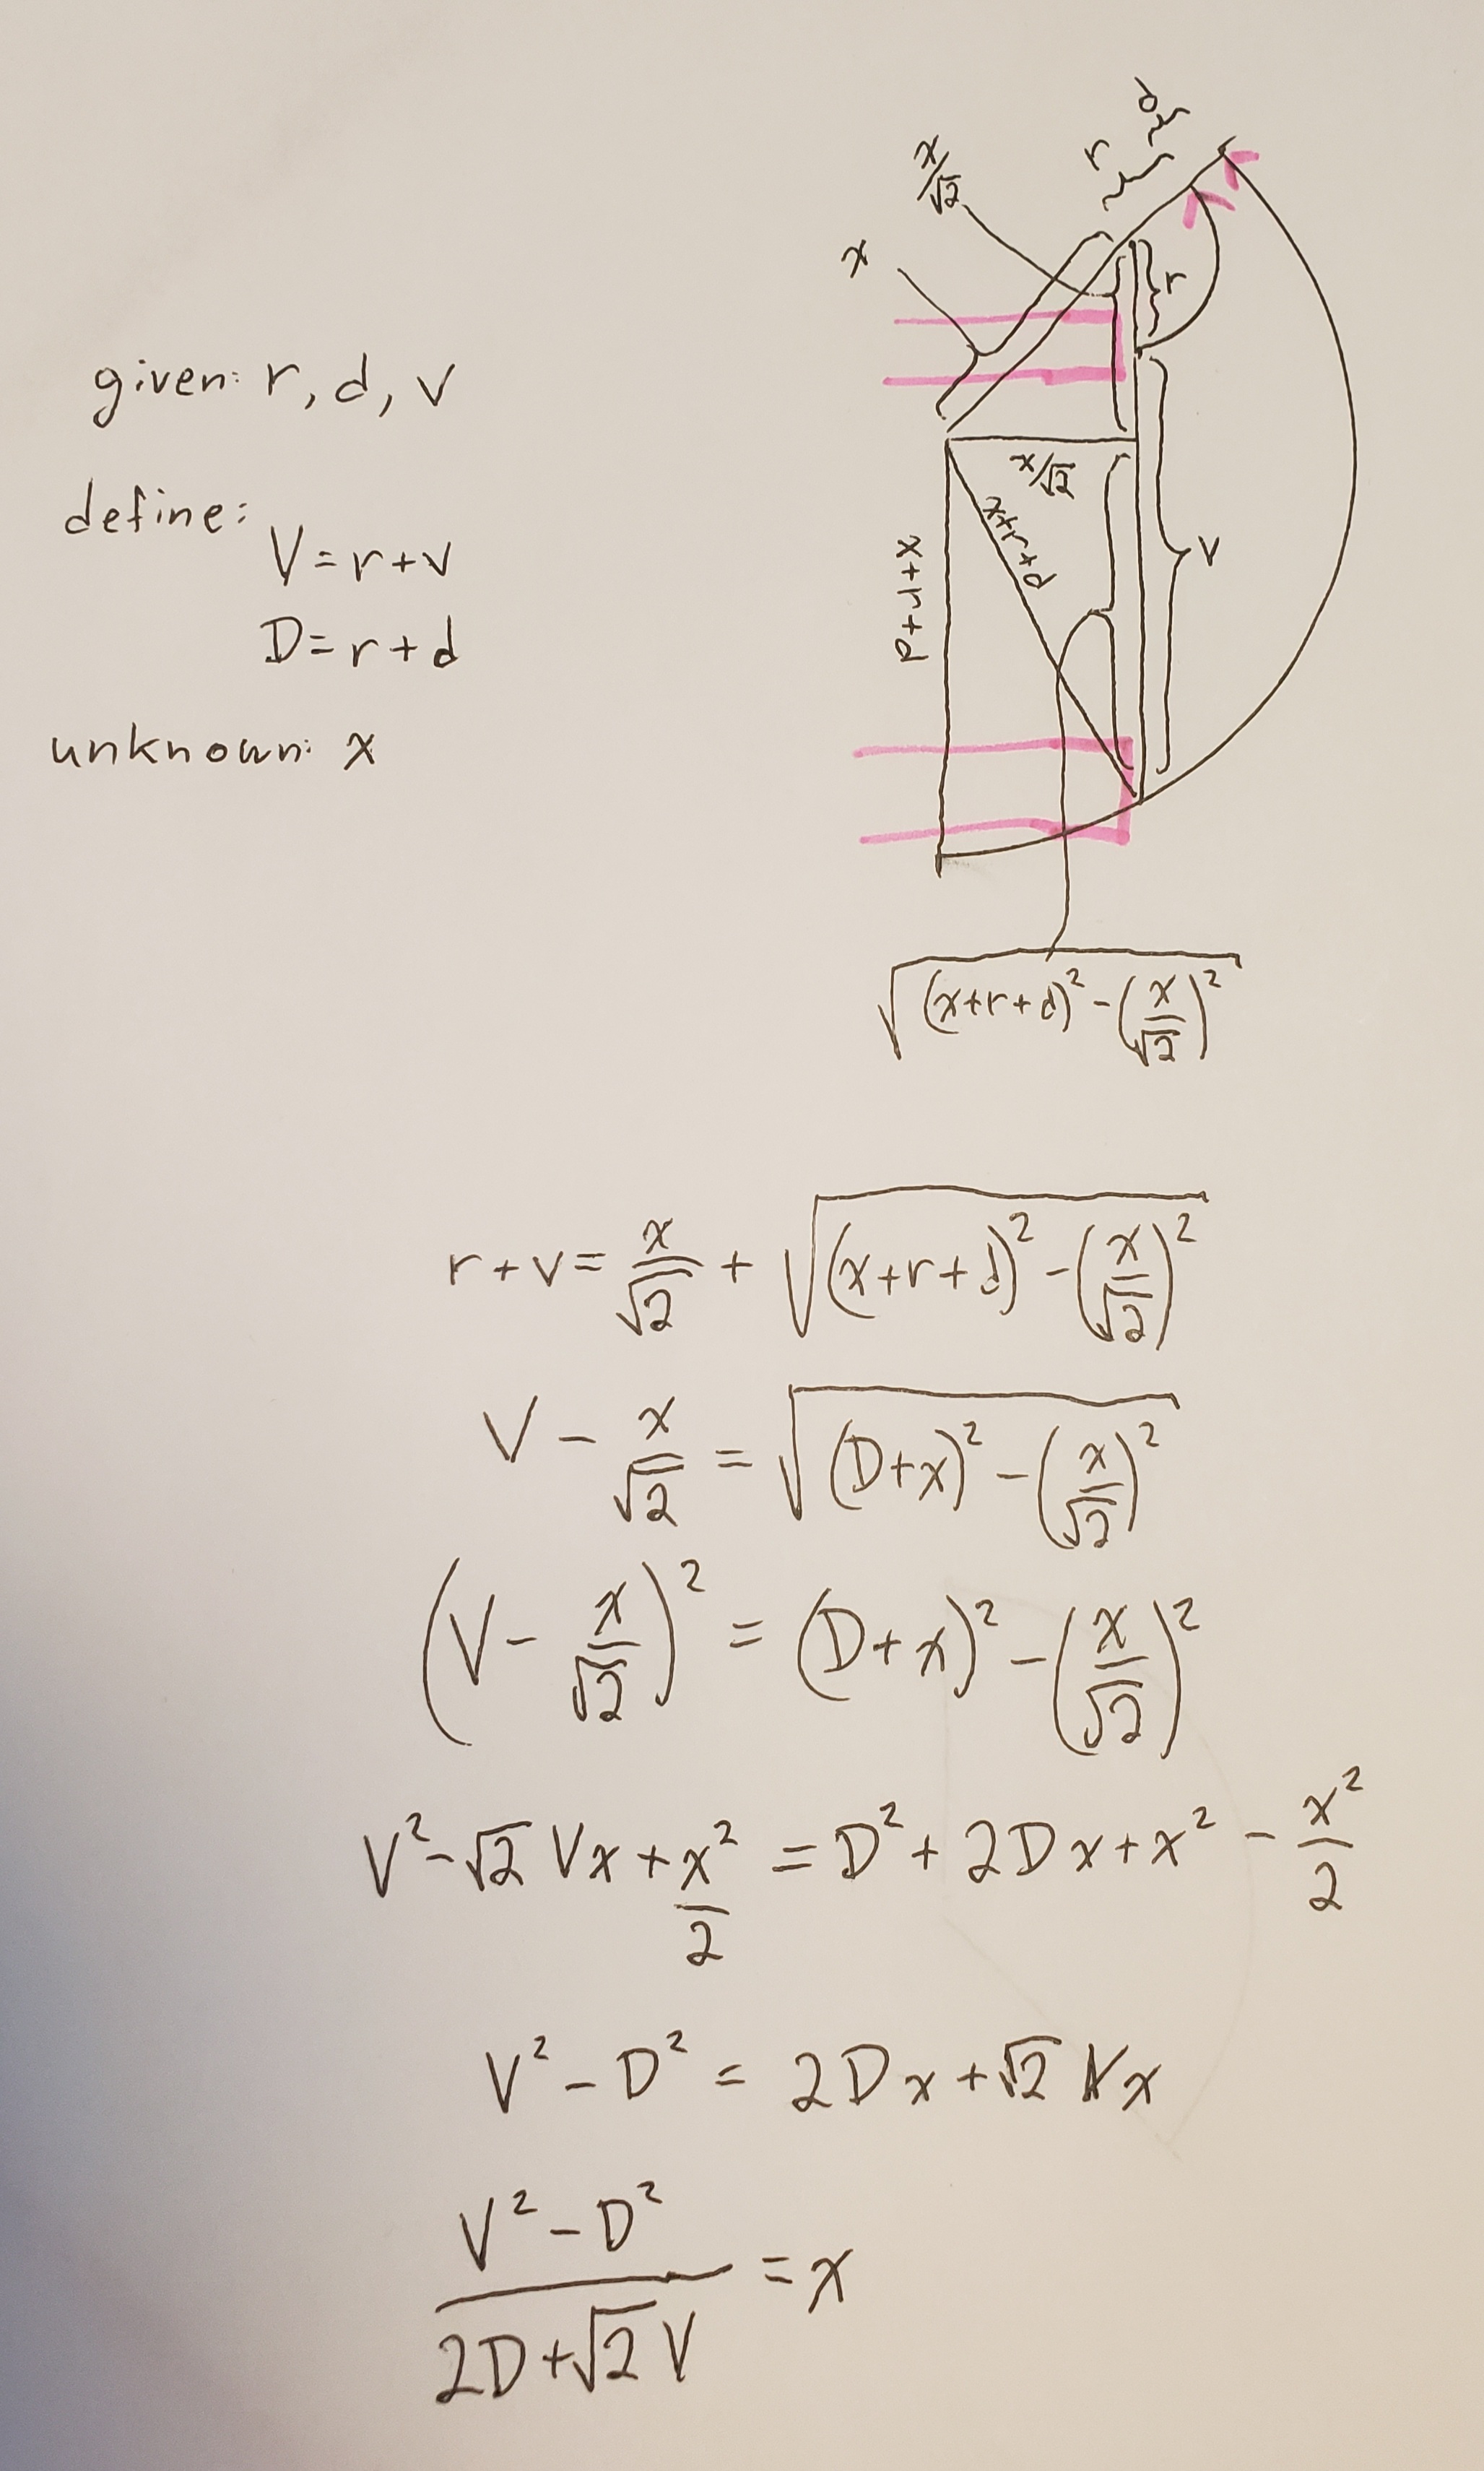 given: r, d, v
define:
V = r + v
D = r + d
unknown: x
d
r
x/√2
x
r
x/√2
x+r+d
x+r+d
v
√((x+r+d)² - (x/√2)²)
r + v = x/√2 + √((x+r+d)² - (x/√2)²)
V - x/√2 = √((D+x)² - (x/√2)²)
(V - x/√2)² = (D+x)² - (x/√2)²
V² - √2 Vx + x²/2 = D² + 2Dx + x² - x²/2
V² - D² = 2Dx + √2 Vx
(V² - D²)/(2D + √2 V) = x